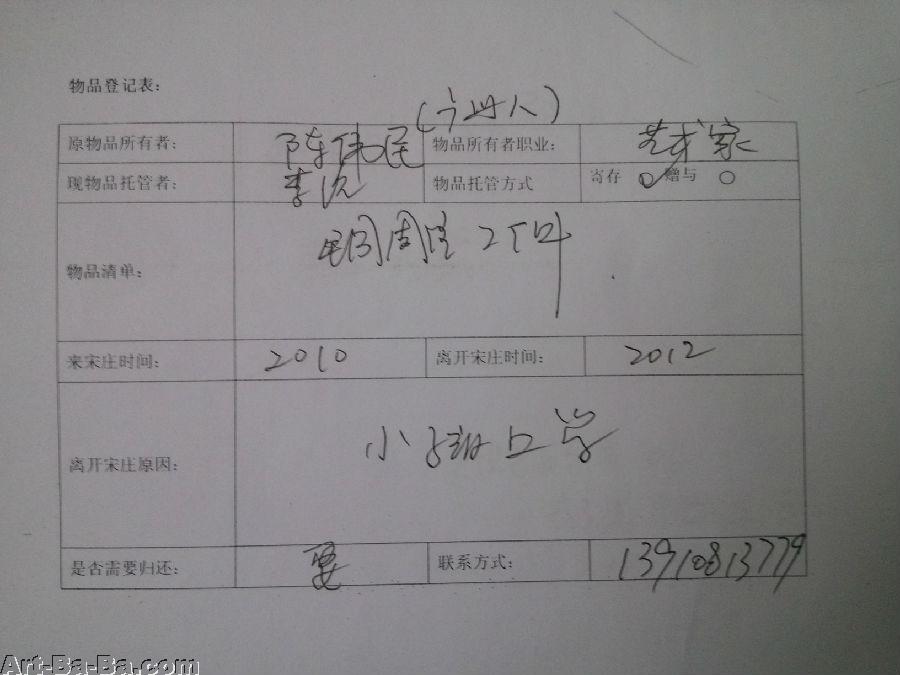 物品登记表：
原物品所有者： 陈伟民 物品所有者职业： 艺术家
现物品托管者： 李 物品托管方式 寄存 赠与
物品清单： 2
来宋庄时间： 2010 离开宋庄时间： 2012
离开宋庄原因： 小孩上学
是否需要归还： 要 联系方式： 13910813779
Art-Ba-Ba.com